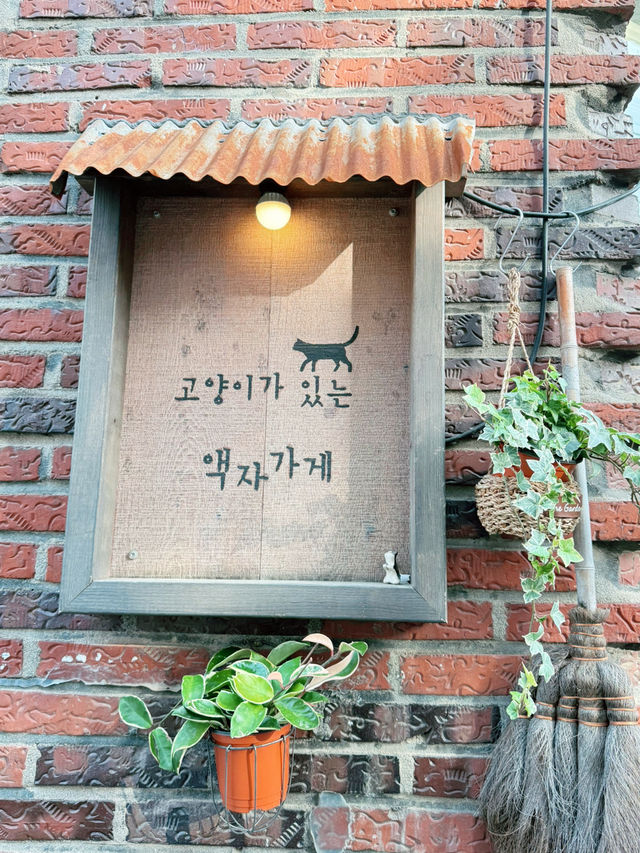 고양이가 있는
액자가게